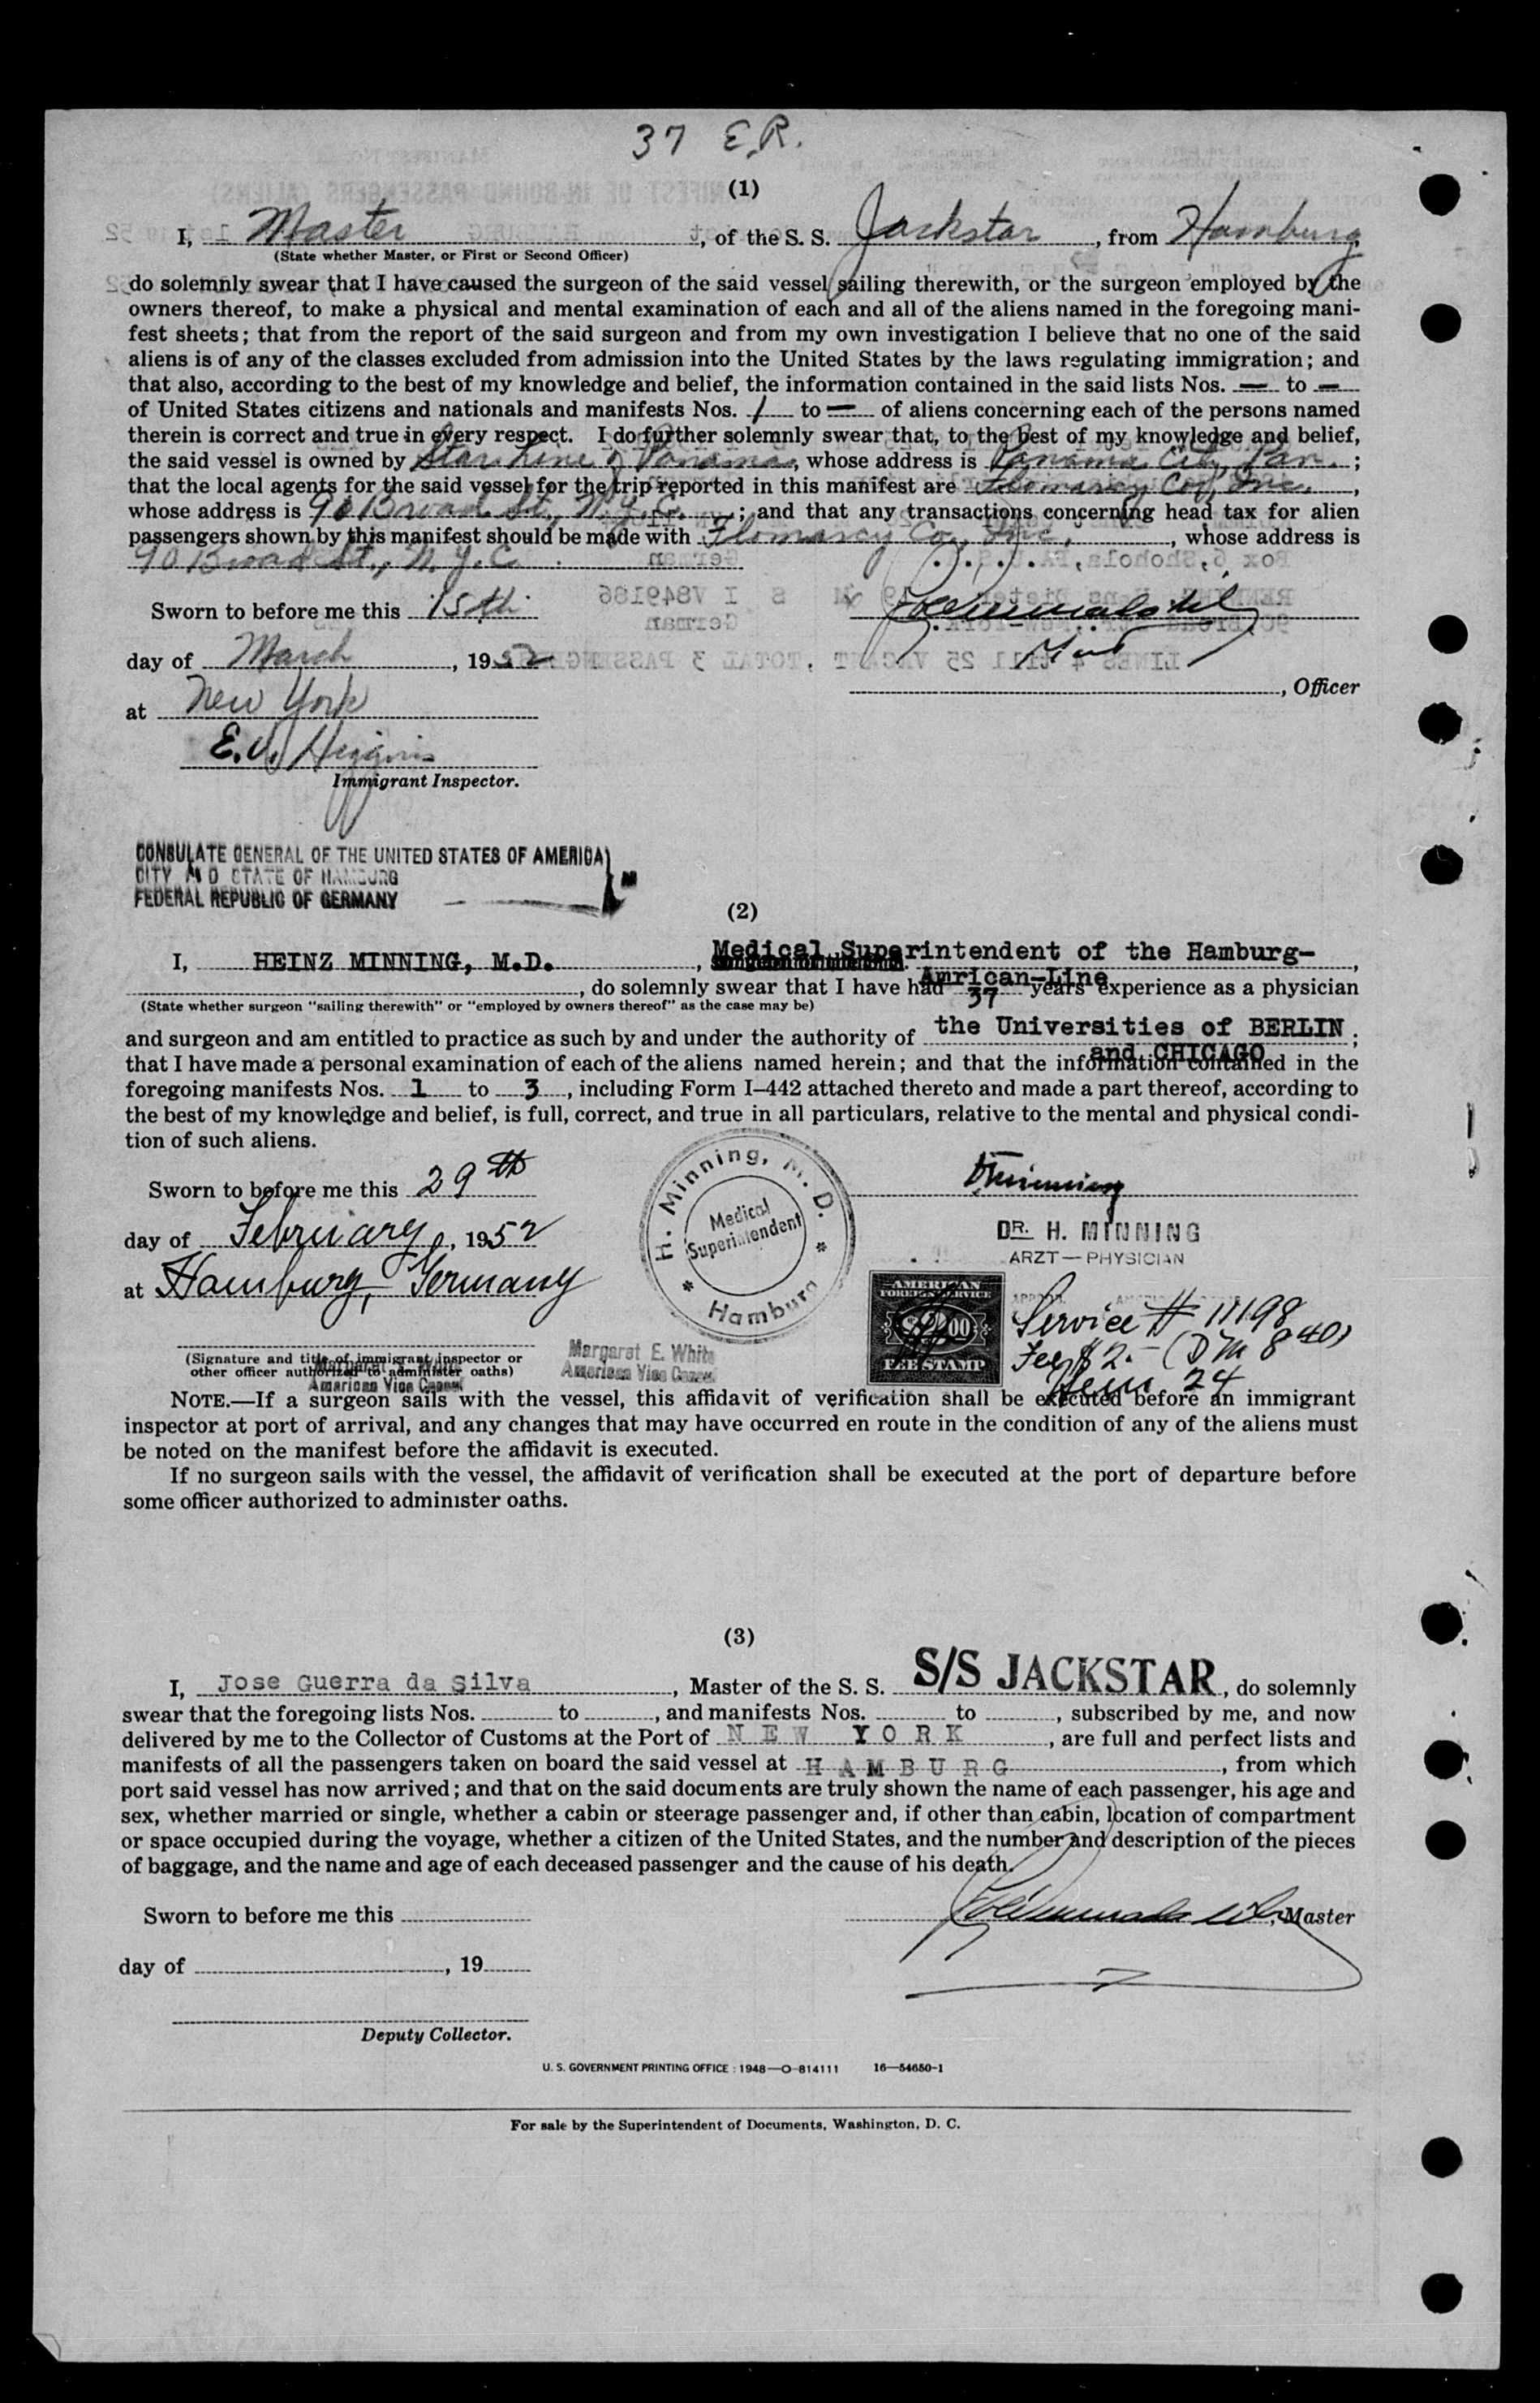 37 E.R.
(1)
I, Master, of the S. S. Jackstar, from Hamburg,
(State whether Master, or First or Second Officer)
do solemnly swear that I have caused the surgeon of the said vessel sailing therewith, or the surgeon employed by the
owners thereof, to make a physical and mental examination of each and all of the aliens named in the foregoing mani-
fest sheets; that from the report of the said surgeon and from my own investigation I believe that no one of the said
aliens is of any of the classes excluded from admission into the United States by the laws regulating immigration; and
that also, according to the best of my knowledge and belief, the information contained in the said lists Nos. — to —
of United States citizens and nationals and manifests Nos. 1 to — of aliens concerning each of the persons named
therein is correct and true in every respect. I do further solemnly swear that, to the best of my knowledge and belief,
the said vessel is owned by Star Line of Panama, whose address is Panama City, Pan.;
that the local agents for the said vessel for the trip reported in this manifest are Flomarcy Co., Inc.,
whose address is 90 Broad St., N.Y.C.; and that any transactions concerning head tax for alien
passengers shown by this manifest should be made with Flomarcy Co., Inc., whose address is
90 Broad St., N.Y.C.
Sworn to before me this 15th
day of March, 1952
, Officer
at New York
E. Higgins
Immigrant Inspector.
CONSULATE GENERAL OF THE UNITED STATES OF AMERICA
CITY AND STATE OF HAMBURG
FEDERAL REPUBLIC OF GERMANY
(2)
I, HEINZ MINNING, M.D., Medical Superintendent of the Hamburg-
Amrican-Line,
, do solemnly swear that I have had 37 years experience as a physician
(State whether surgeon "sailing therewith" or "employed by owners thereof" as the case may be)
and surgeon and am entitled to practice as such by and under the authority of the Universities of BERLIN;
and CHICAGO
that I have made a personal examination of each of the aliens named herein; and that the information contained in the
foregoing manifests Nos. 1 to 3, including Form I-442 attached thereto and made a part thereof, according to
the best of my knowledge and belief, is full, correct, and true in all particulars, relative to the mental and physical condi-
tion of such aliens.
Sworn to before me this 29th
day of February, 1952
at Hamburg, Germany
H. Minning, M. D.
Medical
Superintendent
* Hamburg *
HMinning
DR. H. MINNING
ARZT—PHYSICIAN
AMERICAN
FOREIGN SERVICE
$2.00
FEE STAMP
Service # 11198
Fee $2.- (DM 8.40)
Item 24
(Signature and title of immigrant inspector or
other officer authorized to administer oaths)
Margaret E. White
American Vice Consul
Margaret E. White
American Vice Consul
NOTE.—If a surgeon sails with the vessel, this affidavit of verification shall be executed before an immigrant
inspector at port of arrival, and any changes that may have occurred en route in the condition of any of the aliens must
be noted on the manifest before the affidavit is executed.
If no surgeon sails with the vessel, the affidavit of verification shall be executed at the port of departure before
some officer authorized to administer oaths.
(3)
I, Jose Guerra da Silva, Master of the S. S. S/S JACKSTAR, do solemnly
swear that the foregoing lists Nos. to , and manifests Nos. to , subscribed by me, and now
delivered by me to the Collector of Customs at the Port of NEW YORK, are full and perfect lists and
manifests of all the passengers taken on board the said vessel at HAMBURG, from which
port said vessel has now arrived; and that on the said documents are truly shown the name of each passenger, his age and
sex, whether married or single, whether a cabin or steerage passenger and, if other than cabin, location of compartment
or space occupied during the voyage, whether a citizen of the United States, and the number and description of the pieces
of baggage, and the name and age of each deceased passenger and the cause of his death.
Sworn to before me this
, Master
day of , 19
Deputy Collector.
U. S. GOVERNMENT PRINTING OFFICE : 1948—O-814111 16—54650-1
For sale by the Superintendent of Documents, Washington, D. C.